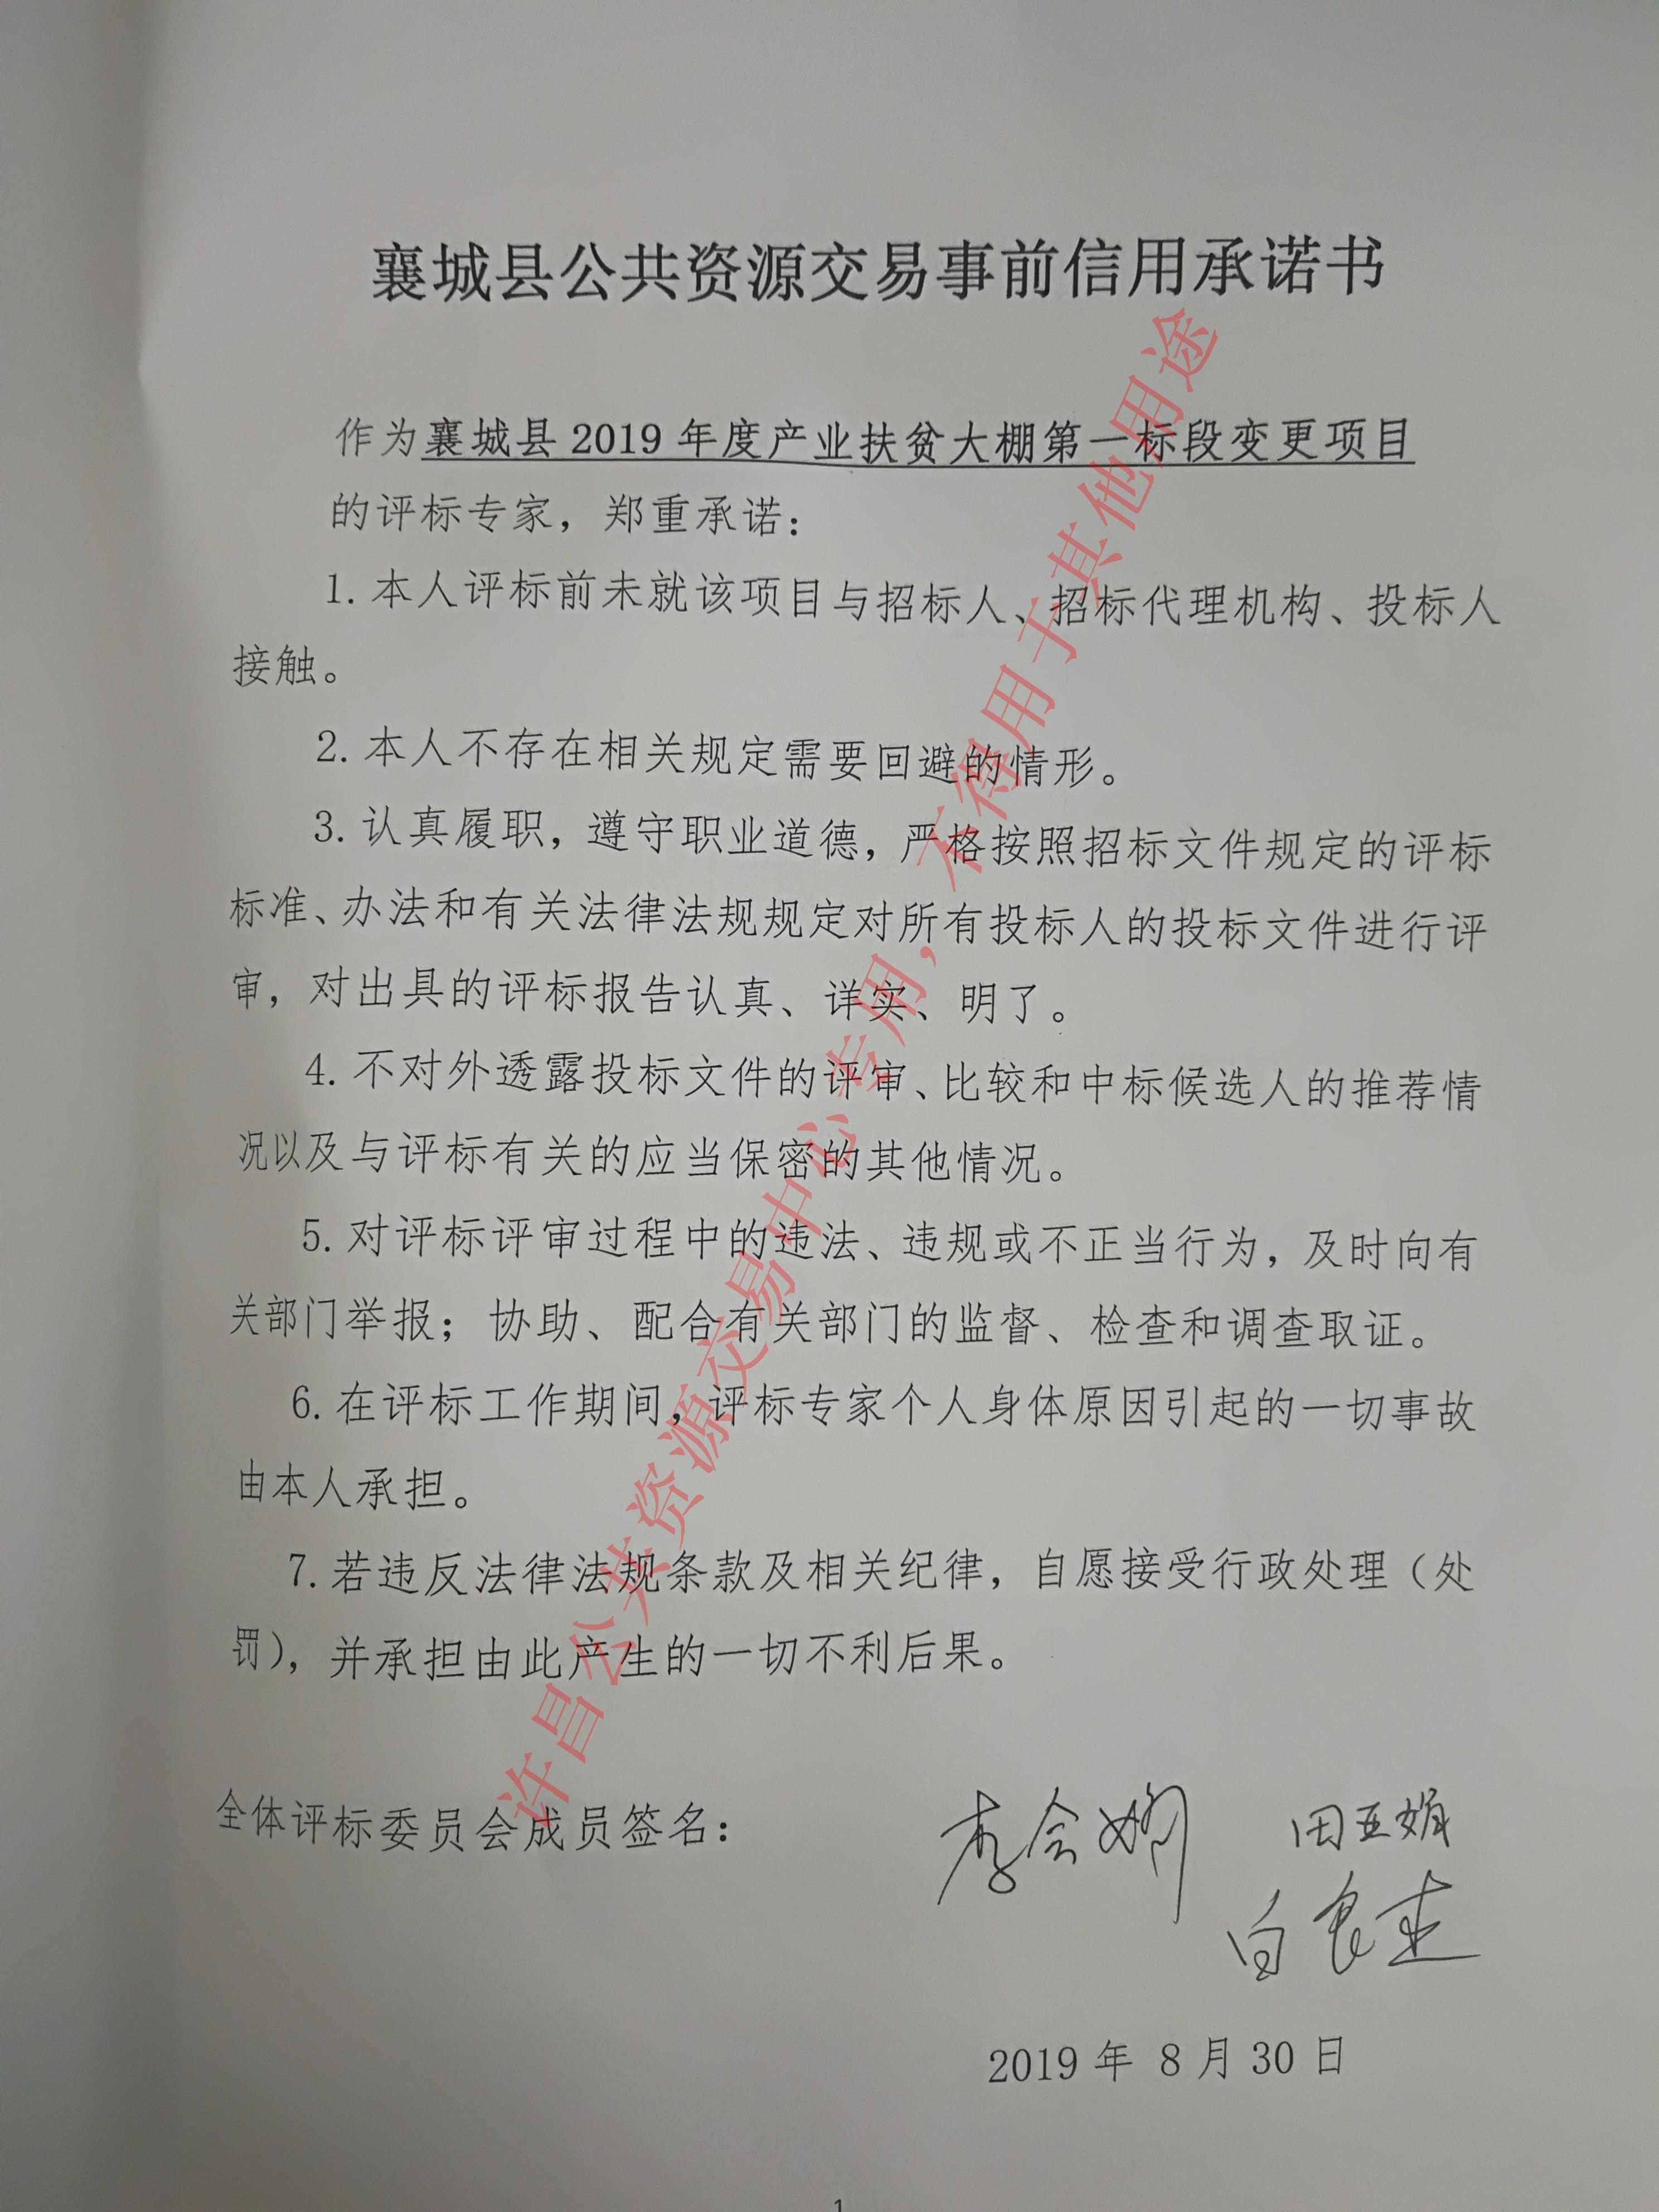 襄城县公共资源交易事前信用承诺书
作为襄城县 2019 年度产业扶贫大棚第一标段变更项目
的评标专家，郑重承诺：
1. 本人评标前未就该项目与招标人、招标代理机构、投标人
接触。
2. 本人不存在相关规定需要回避的情形。
3. 认真履职，遵守职业道德，严格按照招标文件规定的评标
标准、办法和有关法律法规规定对所有投标人的投标文件进行评
审，对出具的评标报告认真、详实、明了。
4. 不对外透露投标文件的评审、比较和中标候选人的推荐情
况以及与评标有关的应当保密的其他情况。
5. 对评标评审过程中的违法、违规或不正当行为，及时向有
关部门举报；协助、配合有关部门的监督、检查和调查取证。
6. 在评标工作期间，评标专家个人身体原因引起的一切事故
由本人承担。
7. 若违反法律法规条款及相关纪律，自愿接受行政处理（处
罚），并承担由此产生的一切不利后果。
全体评标委员会成员签名：
李会娴 田亚娟
白良杰
2019 年 8 月 30 日
1
许昌公共资源交易中心专用，不得用于其他用途